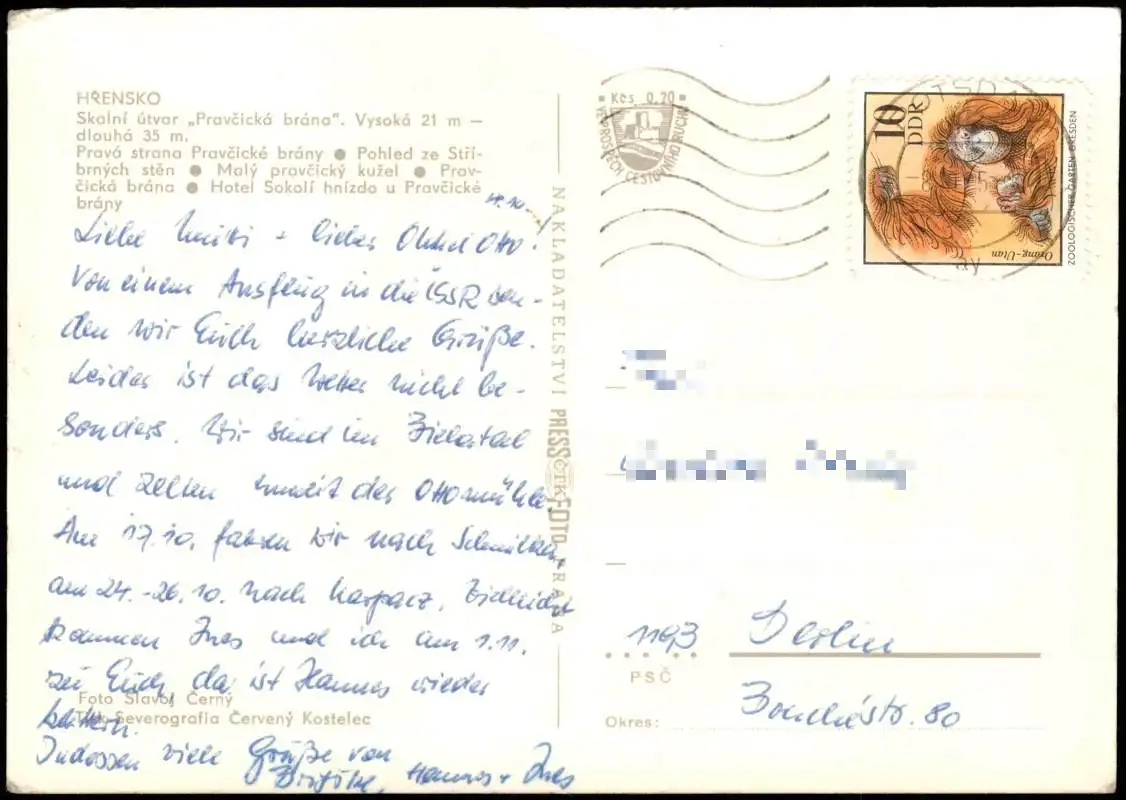 HŘENSKO
Skalní útvar „Pravčická brána". Vysoká 21 m —
dlouhá 35 m.
Pravá strana Pravčické brány ● Pohled ze Stří-
brných stěn ● Malý pravčický kužel ● Prav-
čická brána ● Hotel Sokolí hnízdo u Pravčické
brány
Liebe + lieber Onkel Otto!
Von einem Ausflug in die ČSSR sen-
den wir Euch herzliche Grüße.
Leider ist das Wetter nicht be-
sonders. Wir sind im Bielatal
und zelten unweit der Ottomühle.
Am 17.10. fahren wir nach Schmilka,
am 24.-26.10. nach Karpacz. Vielleicht
kommen Ines und ich am 1.11.
zu Euch, da ist Hannes wieder
klettern.
Indessen viele Grüße von
Brigitte, Hannes + Ines
Foto Slavoj Černý
Tisk Severografia Červený Kostelec
NAKLADATELSTVÍ PRESSFOTO PRAHA
ČTK
Kčs 0,20
VE PROSPĚCH CESTOVNÍHO RUCHU
10
DDR
Orang-Utan
ZOOLOGISCHER GARTEN DRESDEN
1193 Berlin
PSČ
Bouchéstr. 80
Okres: